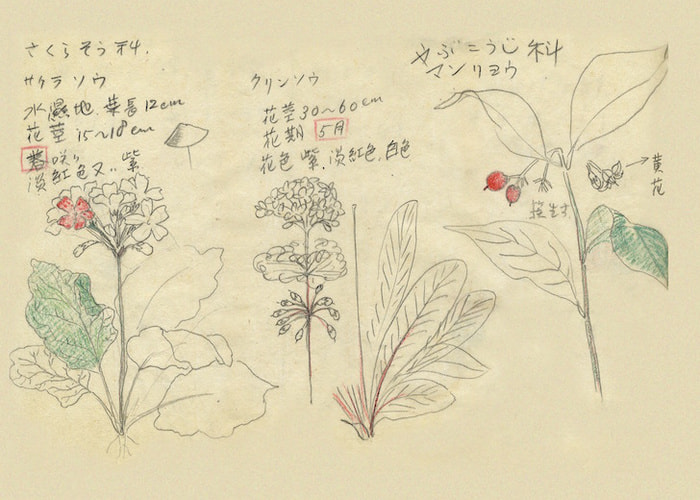 さくらそう科.
サクラソウ
水濕地.葉長12cm
花茎 15~18cm
春咲り
淡紅色又ハ紫
クリンソウ
花茎30~60cm
花期 5月
花色 紫、淡紅色、白色
やぶこうじ 科
マンリョウ
→黄花